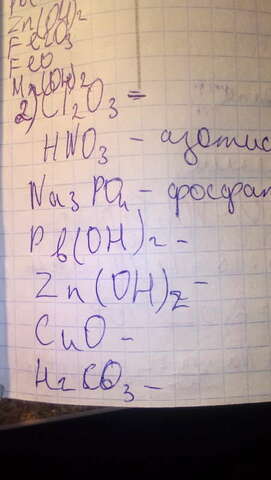 Zn(OH)2
Fe2O3
FeO
Mn(OH)2
2) Cl2O3 =
HNO3 - азотис
Na3PO4 - фосфат
Pb(OH)2 -
Zn(OH)2 -
CuO -
H2CO3 -